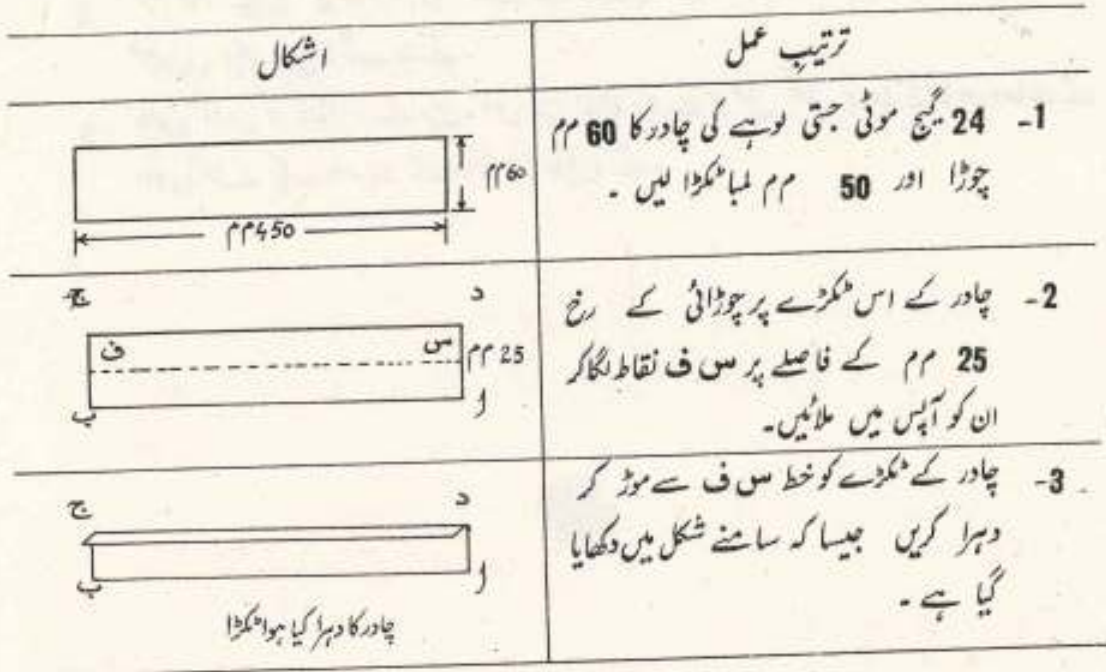 ترتیبِ عمل
اشکال
1- 24 گیج موٹی جستی لوہے کی چادر کا 60 مم
چوڑا اور 50 مم لمبا ٹکڑا لیں ۔
60 مم
450 مم
2- چادر کے اس ٹکڑے پر چوڑائی کے رخ
25 مم کے فاصلے پر س ف نقاط لگا کر
ان کو آپس میں ملائیں۔
د
ج
س
ف
25 مم
ا
ب
3- چادر کے ٹکڑے کو خط س ف سے موڑ کر
دہرا کریں جیسا کہ سامنے شکل میں دکھایا
گیا ہے ۔
د
ج
ا
ب
چادر کا دہرا کیا ہوا ٹکڑا